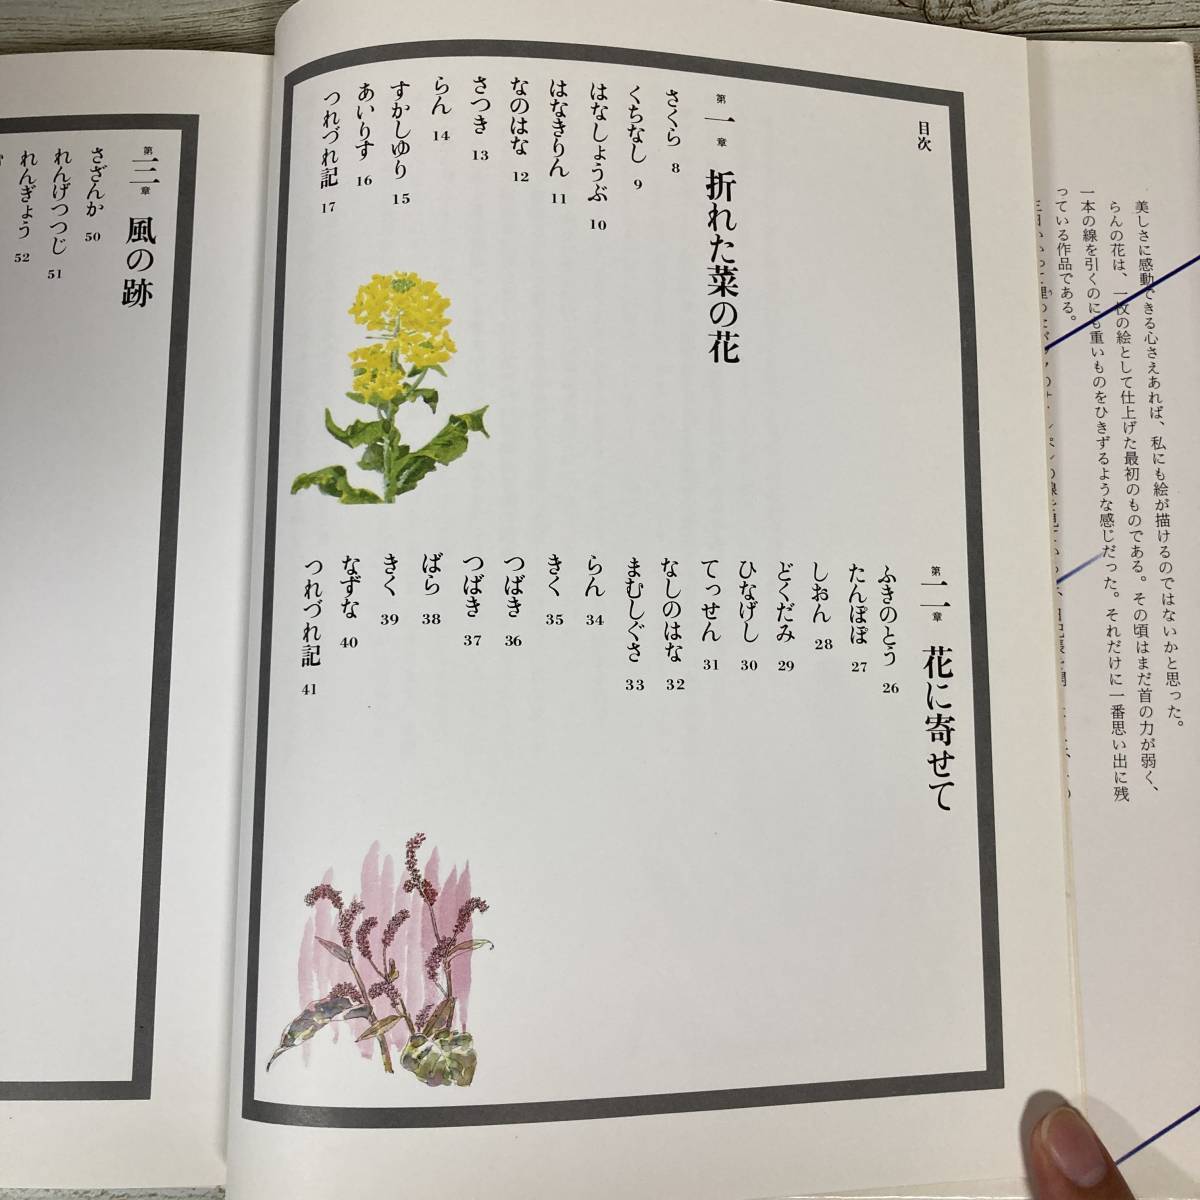 美しさに感動できる心さえあれば、私にも絵が描けるのではないかと思った。
らんの花は、一枚の絵として仕上げた最初のものである。その頃はまだ首の力が弱く、
一本の線を引くのにも重いものをひきずるような感じだった。それだけに一番思い出に残
っている作品である。
目次
第一章 折れた菜の花
さくら 8
くちなし 9
はなしょうぶ 10
はなきりん 11
なのはな 12
さつき 13
らん 14
すかしゆり 15
あいりす 16
つれづれ記 17
第二章 花に寄せて
ふきのとう 26
たんぽぽ 27
しおん 28
どくだみ 29
ひなげし 30
てっせん 31
なしのはな 32
まむしぐさ 33
らん 34
きく 35
つばき 36
つばき 37
ばら 38
きく 39
なずな 40
つれづれ記 41
第三章 風の跡
さざんか 50
れんげつつじ 51
れんぎょう 52